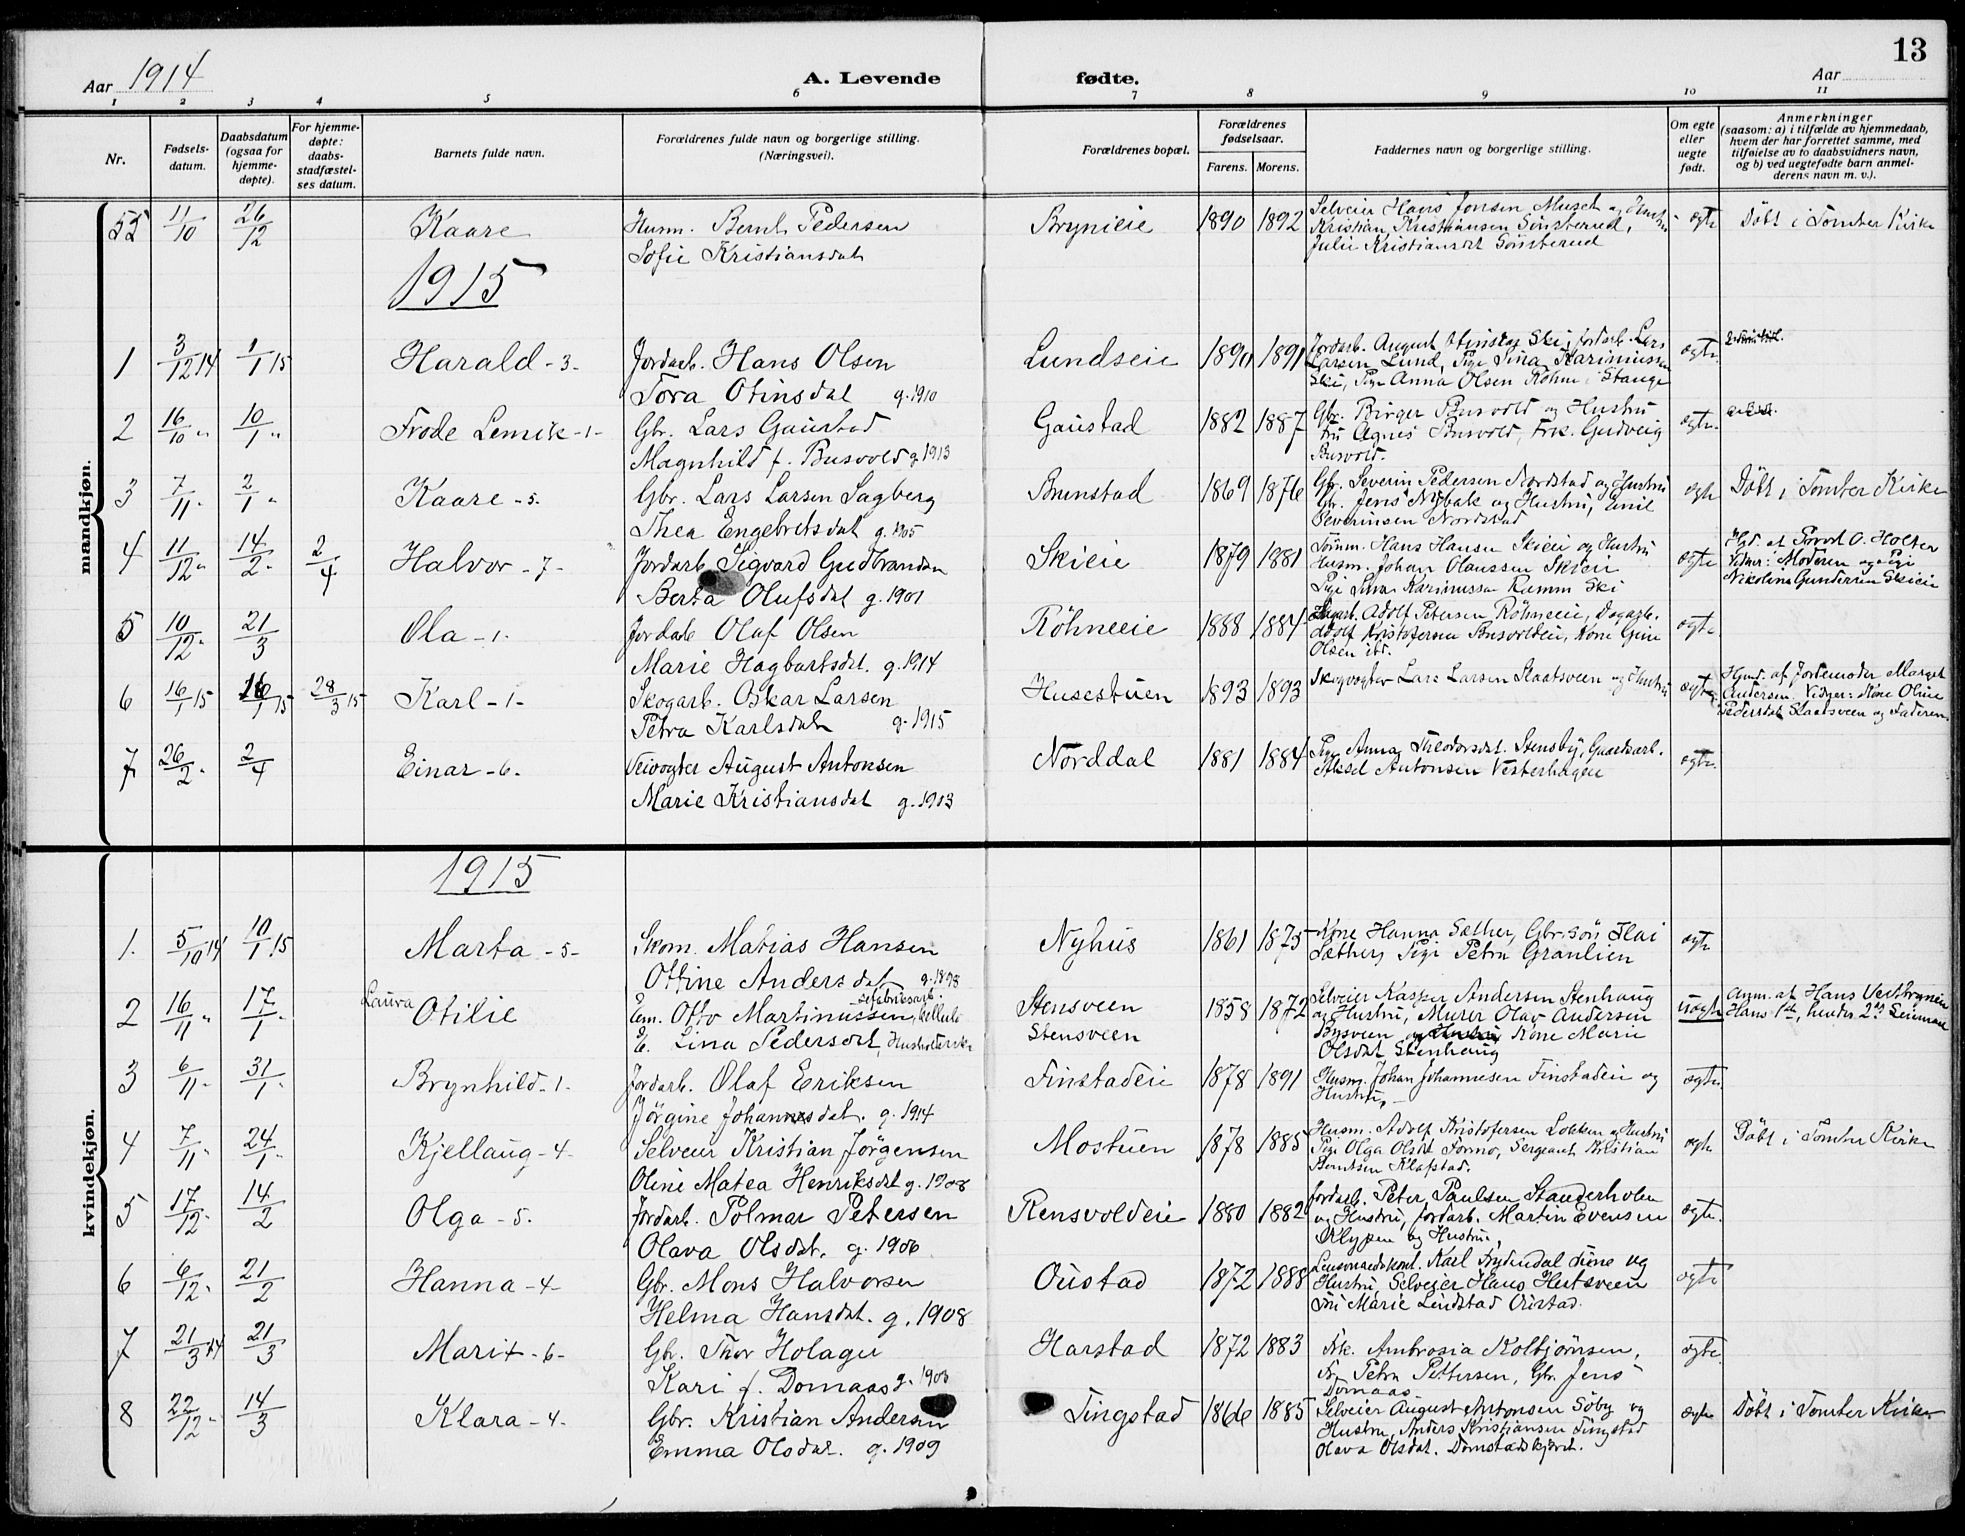 13
Aar 1914
A. Levende fødte.
Aar
1 2 3 4 5 6 7 8 9 10 11
Nr.
Fødsels-
datum.
Daabsdatum
(ogsaa for
hjemme-
døpte).
For hjemme-
døpte:
daabs-
stadfæstel-
ses datum.
Barnets fulde navn.
Forældrenes fulde navn og borgerlige stilling.
(Næringsvei).
Forældrenes bopæl.
Forældrenes
fødselsaar.
Farens. Morens.
Faddernes navn og borgerlige stilling.
Om egte
eller
uegte
født.
Anmerkninger
(saasom: a) i tilfælde av hjemmedaab,
hvem der har forrettet samme, med
tilføielse av to daabsvidners navn,
og b) ved uegtefødte barn anmel-
derens navn m. v.).
mandkjøn.
55 11/10 26/12 Kaare
Husm. Bernt Pedersen
Sofie Kristiansdat
Brynieie 1890 1892
Selveier Hans Jonsen Huset og Hustru
Kristian Kristiansen Sönsterud,
Julie Kristiansdt Sönsterud
egte
Döbt i Tomter Kirke
1915
1 3/12 14 1/1 15 Harald - 3 -
Jordarb. Hans Olsen
Tora Otinsdat g. 1910
Lundseie 1890 1891
Jordarb. August Otinsen Ski, Jordarb. Lars
Larsen Lund, Pige Lina Karinius
Skie, Pige Anna Olsen Röhne i Stange
egte
2 16/10 " 10/1 " Frode Lemik - 1 -
Gbr. Lars Gaustad
Magnhild f. Busvold g. 1913
Gaustad 1882 1887
Gbr. Birger Busvold og Hustru
Fru Agnes Busvold, Frk. Gudveig
Busvold.
egte.
3 7/11 " 2/1 " Kaare - 5.
Gbr. Lars Larsen Sagberg
Thea Engebretsdat g. 1905
Brunstad 1869 1876
Gbr. Severin Pedersen Nordstad og Hustru
Gbr. Jens Nybak og Hustru, Emil
Severinsen Nordstad
egte
Döbt i Tomter Kirke
4 11/12 " 14/2 " 2/4 Halvor - 7 -
Jordarb. Sigvard Gudbrandsen
Berta Olufsdat g. 1901
Skieie 1879 1881
Tömm. Hans Hansen Skieie og Hustru
Husm. Johan Olaussen Skieie
Pige Lina Kariniussen Ski
egte
Hjd. af Provst O. Holter
Vidner: Moderen og Pige
Nikoline Gundersen Skieie
5 10/12 " 21/3 Ola - 1 -
Jordarb Olaf Olsen
Marie Hagbartsdat. g. 1914
Röhneeie 1888 1884
Adolf Petersen Röhneeie, Dagarb.
Adolf Kristofersen Busvoldeie, Kone
Olsen ibd.
egte
6 16/1 15 16/1 15 28/3 15 Karl - 1 -
Skogarb. Oskar Larsen
Petra Karlsdat g. 1915
Husestuen 1893 1893
Skogvogter Lars Larsen Slaatsveen og Hustru
egte
Hjmd. af Jordemoder Margit
Andersen. Vidner: Kone Oline
Pedersdat Slaatsveen og Faderen.
7 26/2 " 2/4 Einar - 6 -
August Antonsen
Marie Kristiansdat g. 1913
Norddal 1881 1884
Pige Anna Theodorsdat. Stensby, Gaardsarb.
Aksel Antonsen Vesterhagen
egte.
kvindekjøn.
1915
1. 5/10 14 10/1 15 Marta - 5 -
Skom. Matias Hansen
Ottine Andersdat g. 1898
Nyhus 1861 1875
Kone Hanna Sæther, Gbr.sön
Sæther, Pige Petra Granlien
egte
2 16/11 " 17/1 " Laura Otilie
Em. Otto Martinussen,
E. Lina Pedersdt, Husholderske
Stensveen
Stensveen
1858 1872
Selveier Kasper Andersen Stenhaug
og Hustru, Murer Olav Andersen
og Kone Marie
Olsdat Stenhaug
uegte
Anm. af Hans Vestbrynieie
Hans 1ste, hendes 2det Leiermaal
3 6/11 " 31/1 " Brynhild - 1 -
Jordarb. Olaf Eriksen
Jörgine Johannesdat. g. 1914
Finstadeie 1878 1891
Husm. Johan Johannesen Finstadeie og
Hustru,
egte.
4 7/11 " 24/1 " Kjellaug - 4 -
Selveier Kristian Jörgensen
Oline Matea Henriksdt g. 1908
Mostuen 1878 1885
Husm. Adolf Kristofersen Lokken og Hustru
Pige Olga Olsdt Formo, Sergeant Kristian
Berntsen Klafstad.
egte
Döbt i Tomter Kirke
5 17/12 " 14/2 Olga - 5.
Jordarb. Polmar Petersen
Olava Olsdat. g. 1906
Rensvoldeie 1880 1882
Jordarb. Peter Paulsen Standerholen
og Hustru, Jordarb. Martin Evensen
Klypen og Hustru,
egte.
6 6/12 " 21/2 Hanna - 4 -
Gbr. Mons Halvorsen
Helma Hansdat. g. 1908
Oustad 1872 1888
Karl og
Hustru, Selveier Hans Hertsveen
Fru Marie Lindstad Oustad.
egte
7 21/3 14 21/3 Marit - 6 -
Gbr. Thor Holager
Kari f. Domaas g. 1903
Harstad 1872 1883
Frk. Ambrosia Kolbjörnsen,
Fr. Petra Pettersen, Gbr. Jens
Domaas
egte.
8 22/12 " 14/3 Klara - 4 -
Gbr. Kristian Andersen
Emma Olsdat. g. 1909
Tingstad 1866 1885
Selveier August Antonsen Söby og
Hustru, Anders Kristiansen Tingstad
Olava Olsdat.
egte
Döbt i Tomter Kirke